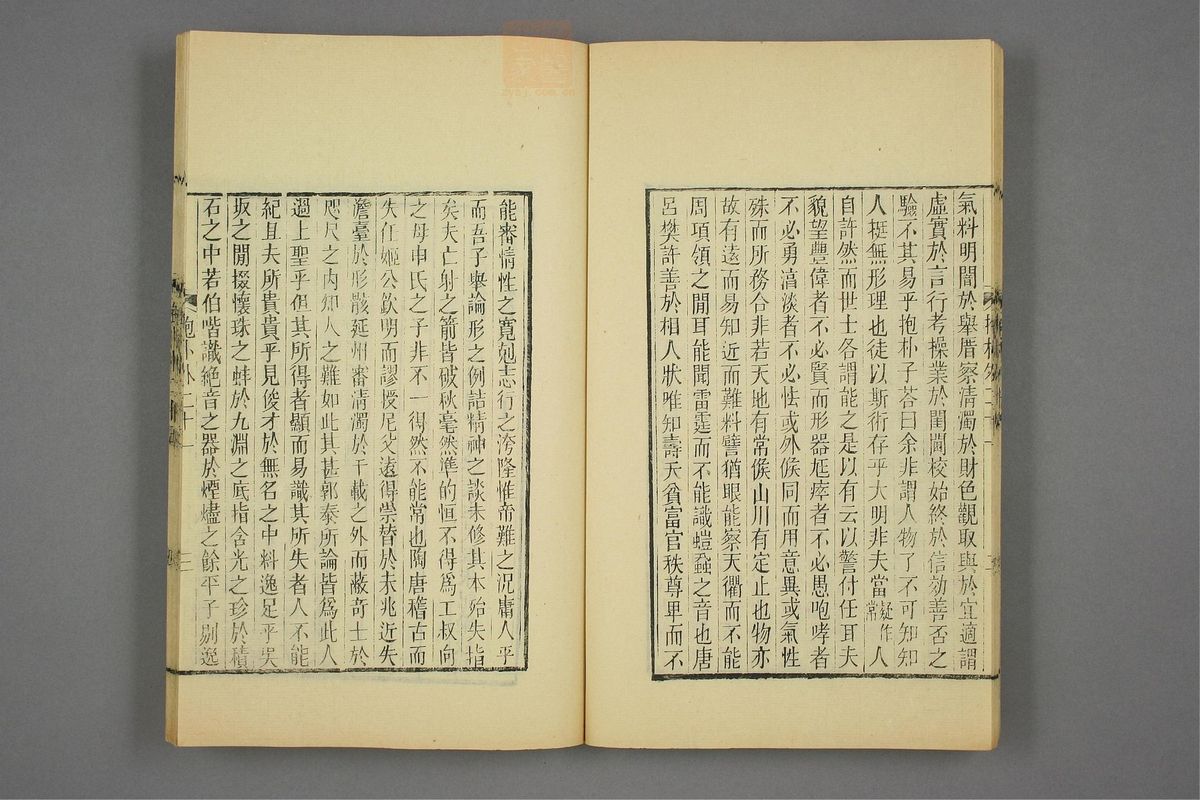 氣料明闇於舉厝察清濁於財色觀取與於宜適謂
虛實於言行考操業於閨閫校始終於信効善否之
驗不其易乎抱朴子荅曰余非謂人物了不可知知
人挺無形理也徒以斯術存乎大明非夫當疑作常人
自許然而世士各謂能之是以有云以警付任耳夫
貌望豐偉者不必賢而形器尫瘁者不必愚咆哮者
不必勇淳淡者不必怯或外候同而用意異或氣性
殊而所務合非若天地有常候山川有定止也物亦
故有遠而易知近而難料譬猶眼能察天衢而不能
周項領之閒耳能聞雷霆而不能識螘蝨之音也唐
呂樊許善於相人狀唯知壽夭貧富官秩尊卑而不
能審情性之寬剋志行之洿隆惟帝難之況庸人乎
而吾子舉論形之例詰精神之談未修其本殆失指
矣夫亡射之箭皆破秋毫然準的恒不得爲工叔向
之母申氏之子非不一得然不能常也陶唐稽古而
失任姬公欽明而謬授尼父遠得崇替於未兆近失
澹臺於形骸延州審清濁於千載之外而蔽奇士於
咫尺之內知人之難如此其甚郭泰所論皆爲此人
過上聖乎但其所得者顯而易識其所失者人不能
紀且夫所貴貴乎見俊才於無名之中料逸足乎吳
坂之閒掇懷珠之蚌於九淵之底指含光之珍於積
石之中若伯喈識絕音之器於煙燼之餘平子剔逸
抱朴外二十一
三